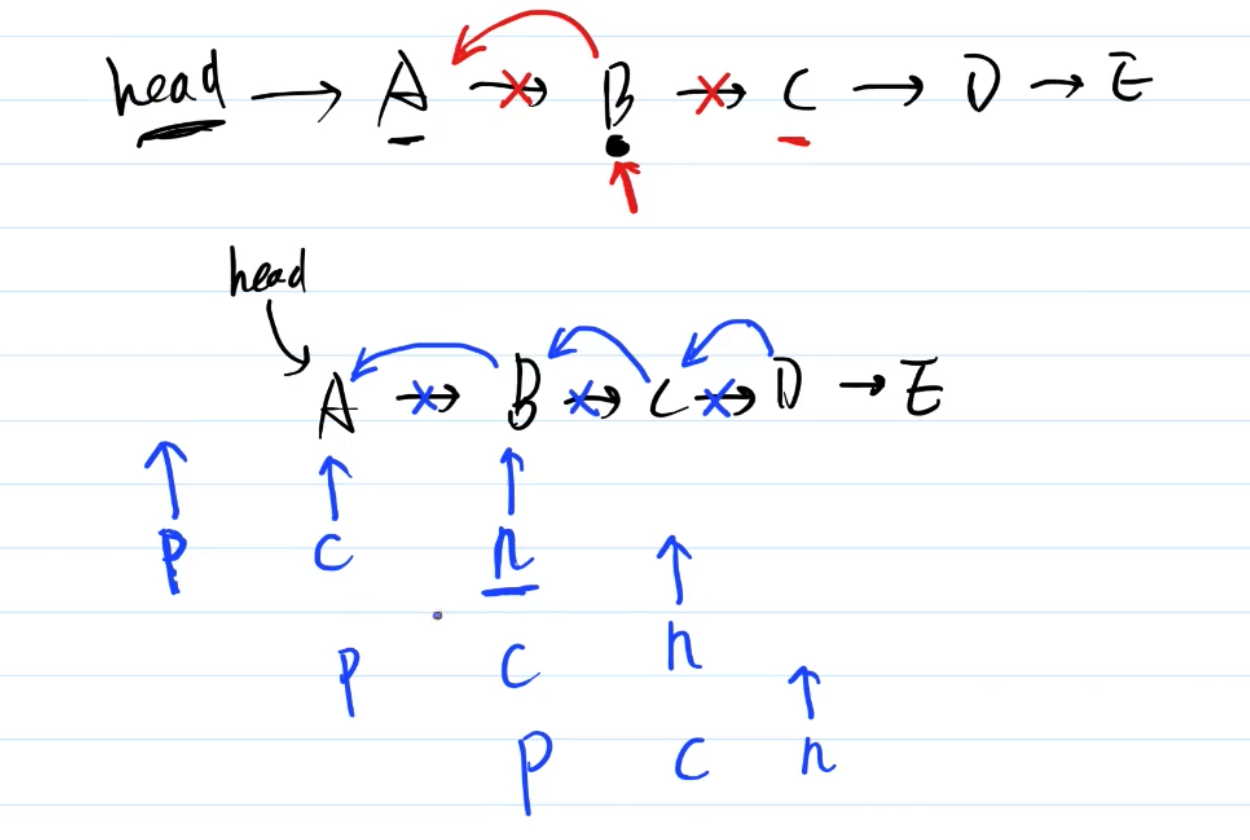 head → A → B → C → D → E
head
A → B → C → D → E
p c n
p c n
p c n